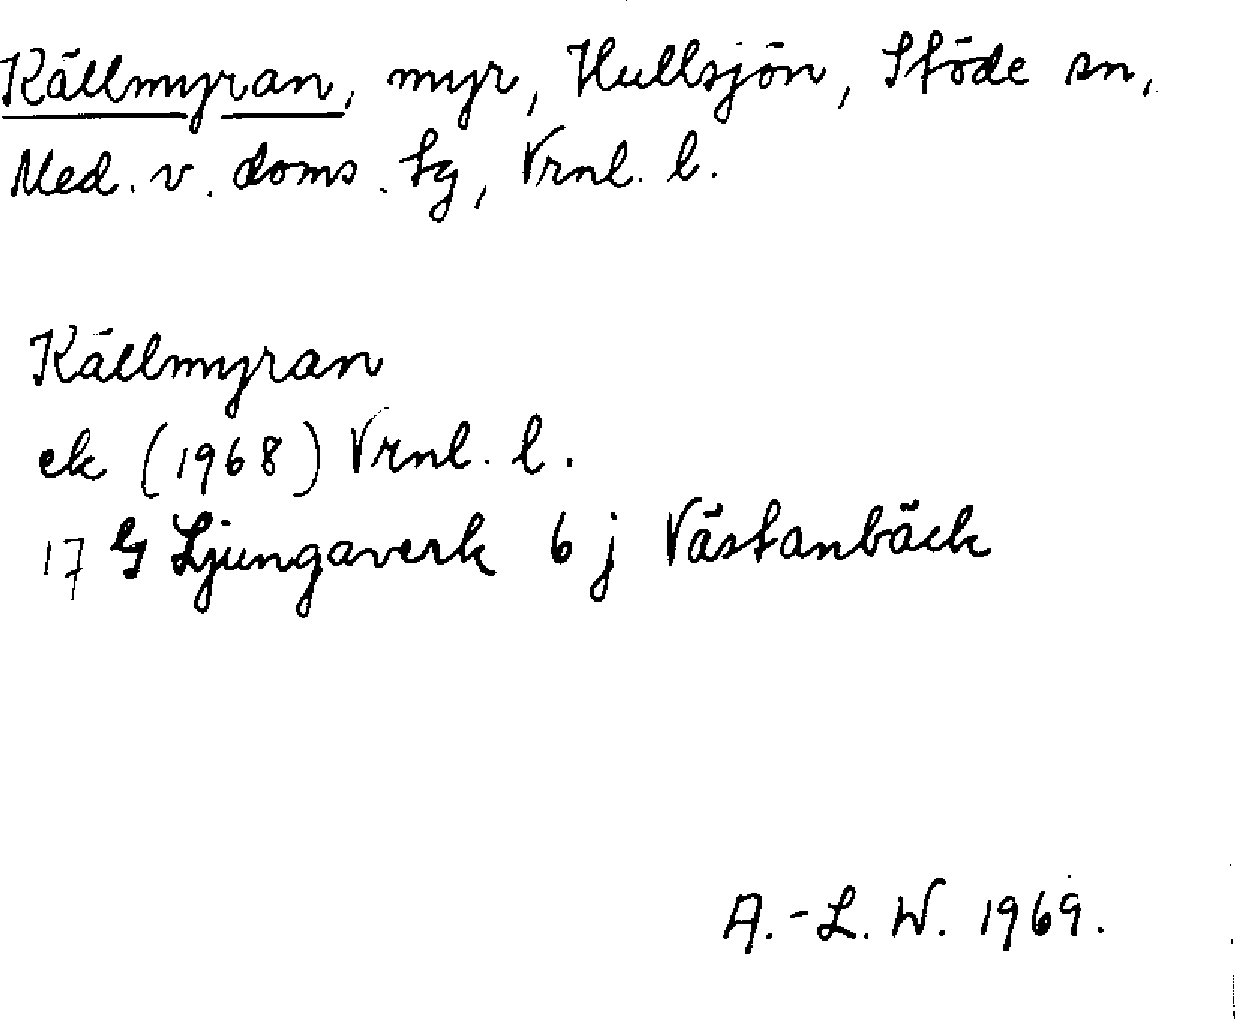 Källmyran, myr, Hullsjön, Stöde sn,
Med. v. doms. tg, Vrnl. l.
Källmyran
ek (1968) Vrnl. l.
17 G Ljungaverk 6 j Västanbäck
A.-L. W. 1969.